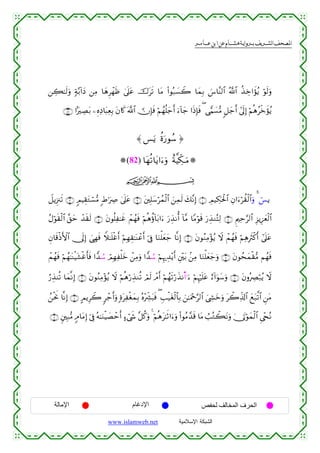 المصحف الشريف برواية هشام عن ابن عامر
وَلَوْ يُؤَاخِذُ ٱللَّهُ ٱلنَّاسَ بِمَا كَسَبُوا۟ مَا تَرَكَ عَلَىٰ ظَهْرِهَا مِن دَآبَّةٍ وَلَٰكِن
يُؤَخِّرُهُمْ إِلَىٰٓ أَجَلٍ مُّسَمًّى ۖ فَإِذَا جَآءَ أَجَلُهُمْ فَإِنَّ ٱللَّهَ كَانَ بِعِبَادِهِۦ بَصِيرًۢا
﴿ سُورَةُ يسٓ ﴾
*مَكِّيَّةٌ وَءَايَاتُهَا (82)*
﷽
يسٓ ۚ وَٱلْقُرْءَانِ ٱلْحَكِيمِ إِنَّكَ لَمِنَ ٱلْمُرْسَلِينَ عَلَىٰ صِرَٰطٍ مُّسْتَقِيمٍ تَنزِيلَ
ٱلْعَزِيزِ ٱلرَّحِيمِ لِتُنذِرَ قَوْمًا مَّآ أُنذِرَ ءَابَآؤُهُمْ فَهُمْ غَٰفِلُونَ لَقَدْ حَقَّ ٱلْقَوْلُ
عَلَىٰٓ أَكْثَرِهِمْ فَهُمْ لَا يُؤْمِنُونَ إِنَّا جَعَلْنَا فِىٓ أَعْنَٰقِهِمْ أَغْلَٰلًا فَهِىَ إِلَى ٱلْأَذْقَانِ
فَهُم مُّقْمَحُونَ وَجَعَلْنَا مِنۢ بَيْنِ أَيْدِيهِمْ سُدًّا وَمِنْ خَلْفِهِمْ سُدًّا فَأَغْشَيْنَٰهُمْ فَهُمْ
لَا يُبْصِرُونَ وَسَوَآءٌ عَلَيْهِمْ ءَآنذَرْتَهُمْ أَمْ لَمْ تُنذِرْهُمْ لَا يُؤْمِنُونَ إِنَّمَا تُنذِرُ
مَنِ ٱتَّبَعَ ٱلذِّكْرَ وَخَشِىَ ٱلرَّحْمَٰنَ بِٱلْغَيْبِ ۖ فَبَشِّرْهُ بِمَغْفِرَةٍ وَأَجْرٍ كَرِيمٍ إِنَّا نَحْنُ
نُحْىِ ٱلْمَوْتَىٰ وَنَكْتُبُ مَا قَدَّمُوا۟ وَءَاثَٰرَهُمْ ۚ وَكُلَّ شَىْءٍ أَحْصَيْنَٰهُ فِىٓ إِمَامٍ مُّبِينٍ
الحرف المخالف لحفص الإدغام الإمالة
الشبكة الإسلامية www.islamweb.net